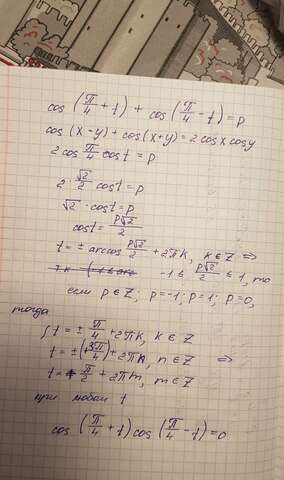 cos (π/4 + t) + cos (π/4 - t) = p
cos (x - y) + cos (x + y) = 2 cos x cos y
2 cos π/4 cos t = p
2 · √2/2 cos t = p
√2 · cos t = p
cos t = p√2/2
t = ± arccos p√2/2 + 2πk, k ∈ Z ⇔
-1 ≤ p√2/2 ≤ 1, то
если p ∈ Z; p = -1; p = 1; p = 0,
тогда
t = ± π/4 + 2πk, k ∈ Z
t = ± (3π/4) + 2πn, n ∈ Z ⇔
t = π/2 + 2πm, m ∈ Z
при любом t
cos (π/4 + t) cos (π/4 - t) = 0